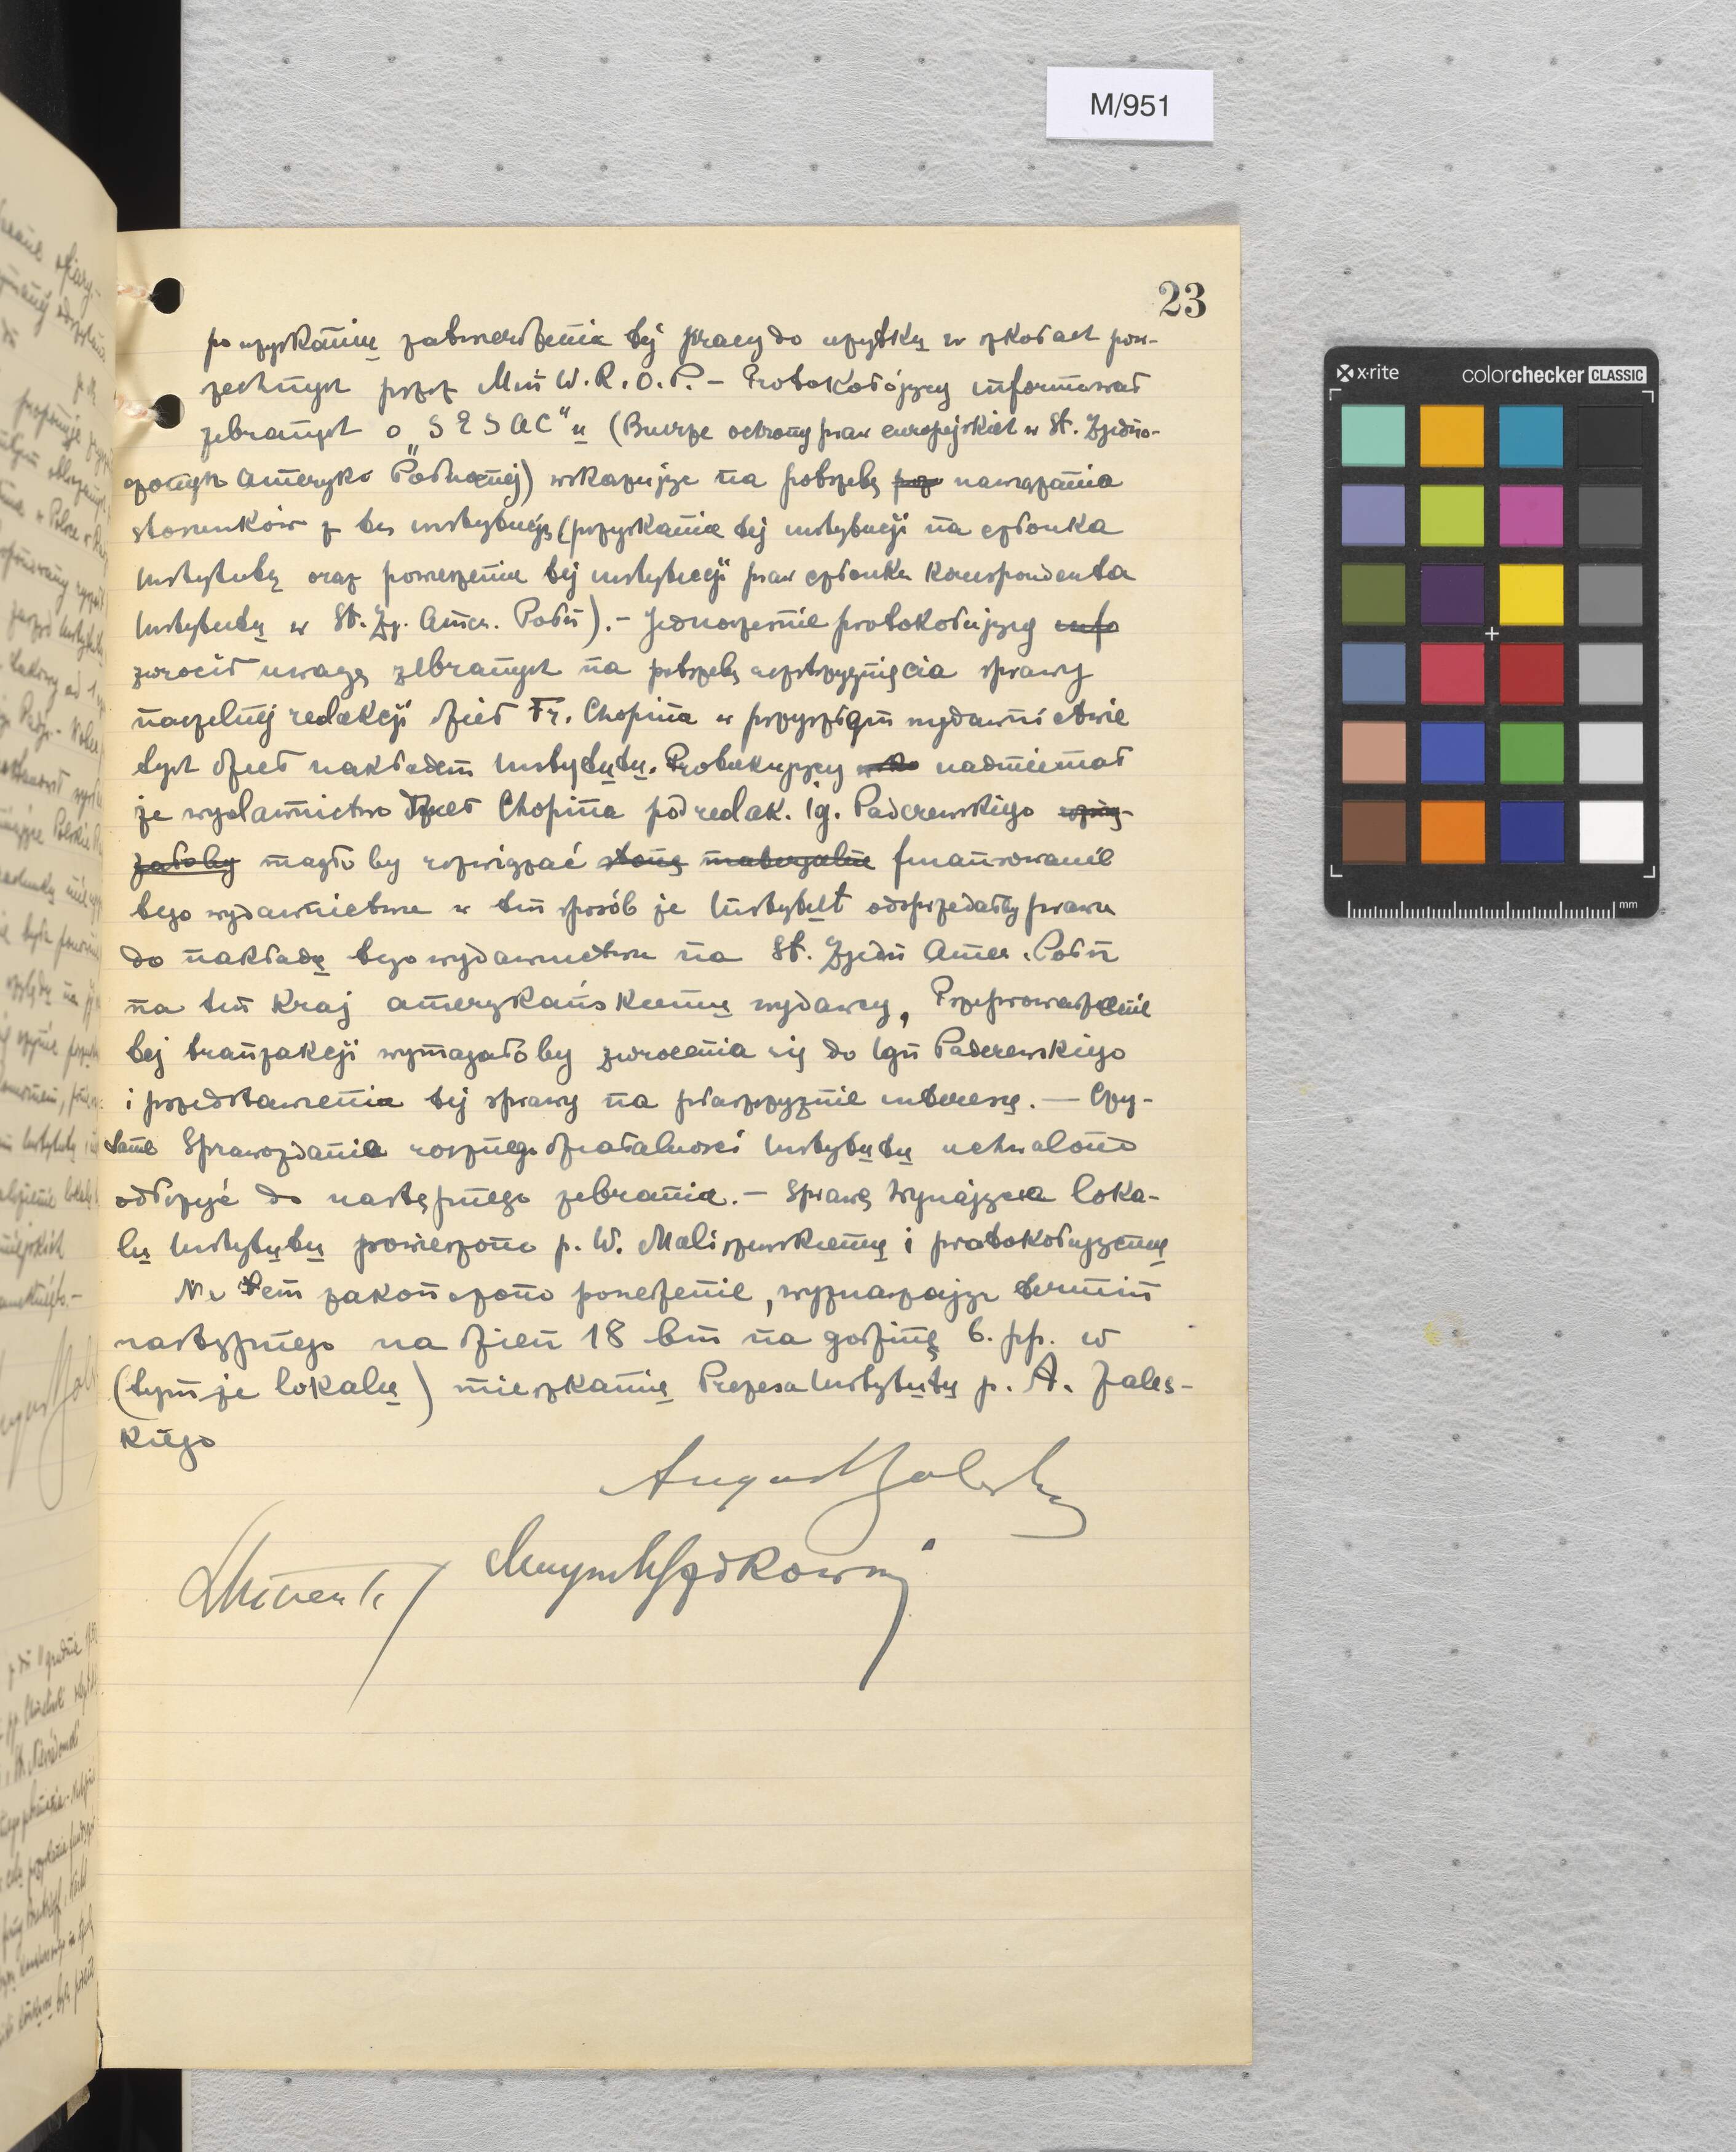 M/951
x-rite
colorchecker CLASSIC
mm
23
po uzyskaniu zatwierdzenia tej pracy do użytku w szkołach pow-
szechnych przez Min W. R. i O. P. – Protokołójący informował
zebranych o „SESAC"u (Biurze ochrony praw europejskich w St. Zjedno-
czonych Ameryki Północnej) wskazując na potrzebę nawiązania
stosunków z tą instytucją (pozyskania tej instytucji na członka
Instytutu oraz powierzenia tej instytucji praw członka korespondenta
Instytutu w St. Zj. Amer. Półn). – Jednocześnie protokołujący
zwrócił uwagę zebranych na potrzebę rozstrzygnięcia sprawy
naczelnej redakcji dzieł Fr. Chopina w przyszłym wydawnictwie
tych dzieł nakładem Instytutu. Protokułujący nadmieniał
że wydawnictwo Dzieł Chopina pod redak. Ig. Paderewskiego
mogłoby rozwiązać stronę materjalną finansowanie
tego wydawnictwa w ten sposób że Instytut odsprzedałby prawa
do nakładu tego wydawnictwa na St. Zjedn Amer. Półn
na ten kraj amerykańskiemu wydawcy, Przeprowadzenie
tej tranzakcji wymagałoby zwrócenia się do Ign Paderewskiego
i przedstawienia tej sprawy na płaszczyznie interesu. — Czy-
tanie Sprawozdania rocznego działalności Instytutu uchwalono
odłożyć do następnego zebrania. – Sprawę Wynajęcia loka-
lu Instytutu powierzono p. W. Maliszewskiemu i protokołującemu
Na tem zakończono posiedzenie, wyznaczając termin
następnego na dzień 18 bm na godzinę 6. pp. w
(tymże lokalu) mieszkaniu Prezesa Instytutu p. A. Zales-
kiego
August Zaleski